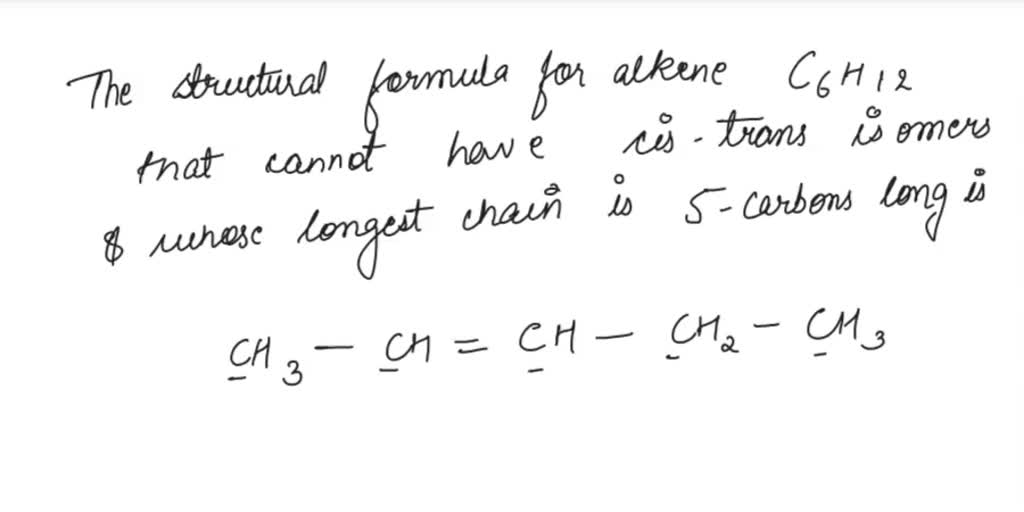 The structural formula for alkene C6H12
that cannot have cis-trans isomers
& whose longest chain is 5-carbons long is
CH3 - CH = CH - CH2 - CH3